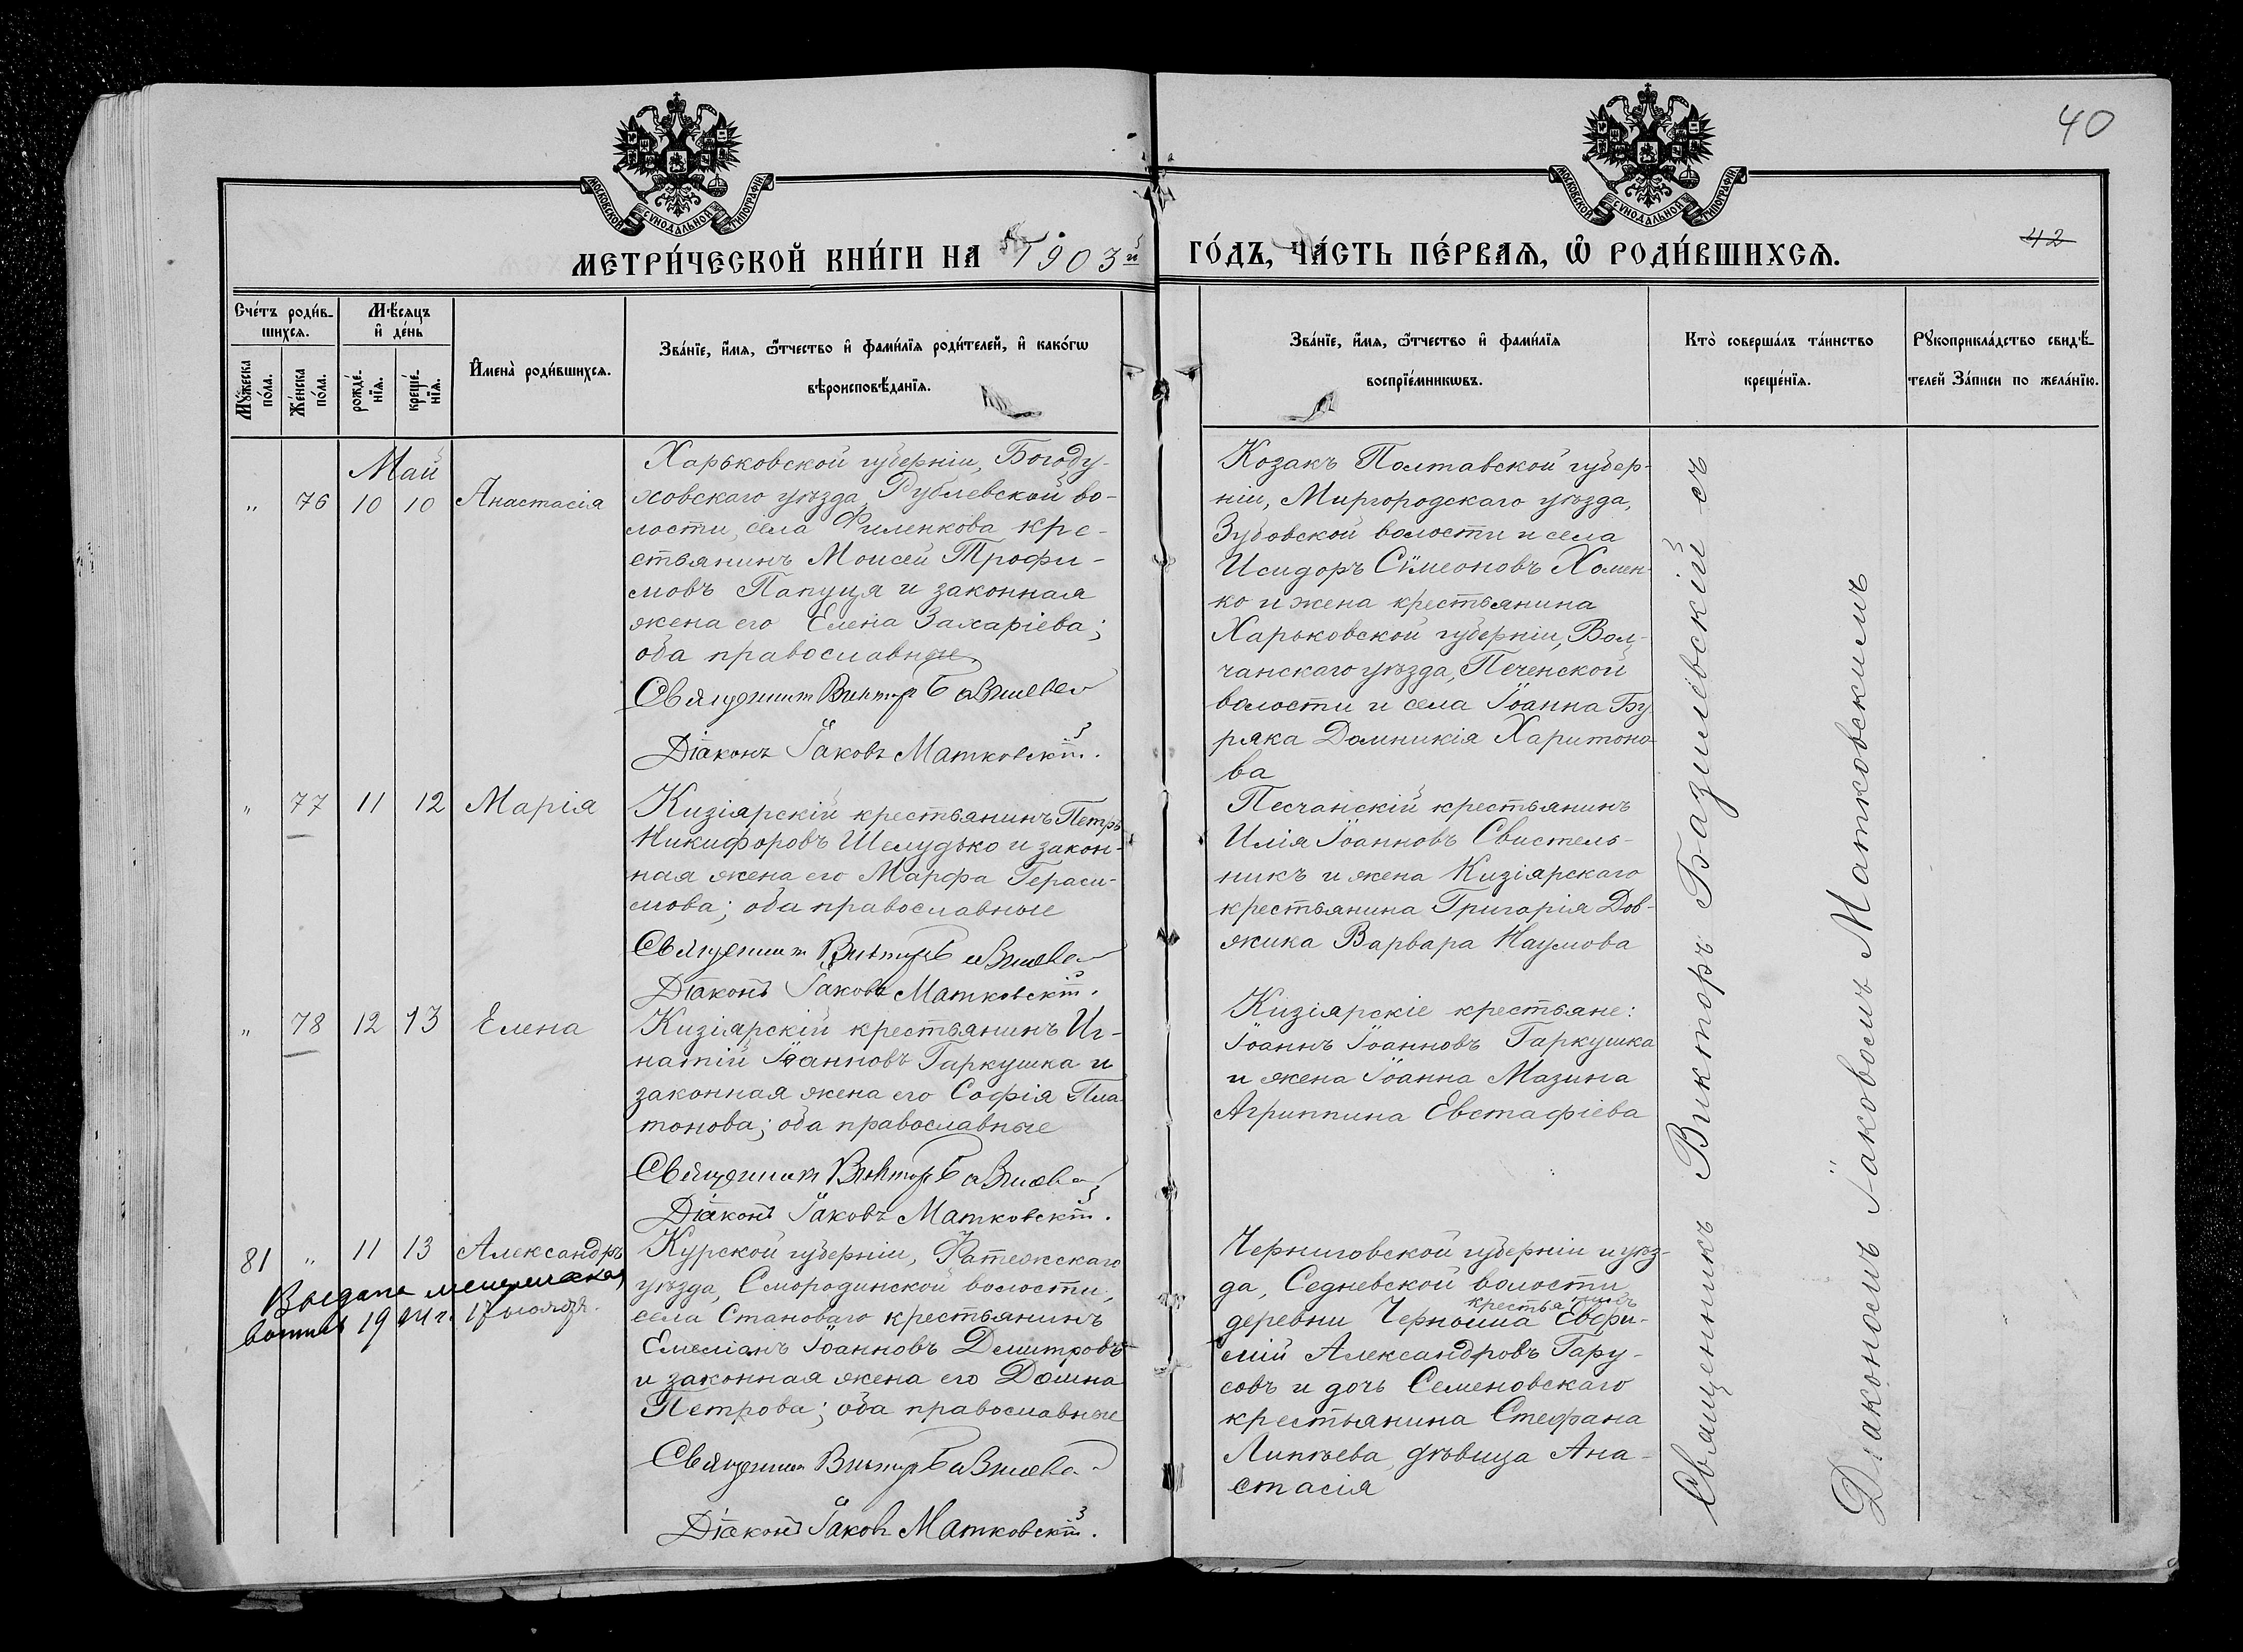 40
МОСКОВСКОЙ СУНОДАЛЬНОЙ ТИПОГРАФІИ
МОСКОВСКОЙ СУНОДАЛЬНОЙ ТИПОГРАФІИ
МЕТРИ́ЧЕСКОЙ КНИ́ГИ НА 1903й ГО́ДЪ, ЧА́СТЬ ПЕ́РВАѦ, Ѿ РОДИ́ВШИХСѦ.
42
Сче́тъ роди́в-
шихсѧ.
Мѣ́сѧцъ
и҆ де́нь
Мꙋ́жеска по́ла.
Же́нска по́ла.
рожде́-нїѧ.
креще́-нїѧ.
И҆мена̀ роди́вшихсѧ.
Зва́нїе, и҆́мѧ, ѻ҆́тчество и҆ фами́лїѧ роди́телей, и҆ како́гѡ
вѣроисповѣ́данїѧ.
Зва́нїе, и҆́мѧ, ѻ҆́тчество и҆ фами́лїѧ
воспрїе́мникѡвъ.
Кто̀ соверша́лъ та́инство
креще́нїѧ.
Рꙋкоприкла́дство свидѣ́-
телей За́писи по жела́нїю.
Май
" 76 10 10 Анастасія
Харьковской губерніи, Богоду-
ховскаго уѣзда, Рублевской во-
лости, села Филенкова кре-
стьянинъ Моисей Трофи-
мовъ Папуця и законная
жена его Елена Захаріева;
оба православные.
Священникъ Викторъ Базилевск
Діаконъ Іаковъ Матковскій.
Козакъ Полтавской губер-
ніи, Миргородскаго уѣзда,
Зубовской волости и села
Исидоръ Сѵмеоновъ Хомен-
ко и жена крестьянина
Харьковской губерніи, Вол-
чанскаго уѣзда, Печенской
волости и села Іоанна Бу
ряка Домникія Харитоно-
ва
" 77 11 12 Марія
Кизіярскій крестьянинъ Петръ
Никифоровъ Шелудько и закон-
ная жена его Марфа Гераси-
мова; оба православные
Священникъ Викторъ Базилевск
Діаконъ Іаковъ Матковскій.
Песчанскій крестьянинъ
Илія Іоанновъ Свистель-
никъ и жена Кизіярскаго
крестьянина Григорія Дов-
жика Варвара Наумова
" 78 12 13 Елена
Кизіярскій крестьянинъ Иг-
натій Іоанновъ Гаркушка и
законная жена его Софія Пла-
тонова; оба православные
Священникъ Викторъ Базилевск
Діаконъ Іаковъ Матковскій.
Кизіярскіе крестьяне:
Іоаннъ Іоанновъ Гаркушка
и жена Іоанна Мазина
Агриппина Евстафіева
81 " 11 13 Александръ
Выдана метрическая
19 24 г. 17 ноября.
Курской губерніи, Фатежскаго
уѣзда, Смородинской волости,
села Становаго крестьянинъ
Емеліанъ Іоанновъ Димитровъ
и законная жена его Домна
Петрова; оба православные
Священникъ Викторъ Базилевск
Діаконъ Іаковъ Матковскій.
Черниговской губерніи и уѣз-
да, Седневской волости
крестьянинъ
деревни Черныша Евфи-
мій Александровъ Гару-
совъ и дочь Семеновскаго
крестьянина Стефана
Липѣева, дѣвица Ана-
стасія
Священникъ Викторъ Базилевскій съ
Діакономъ Іаковомъ Матковскимъ